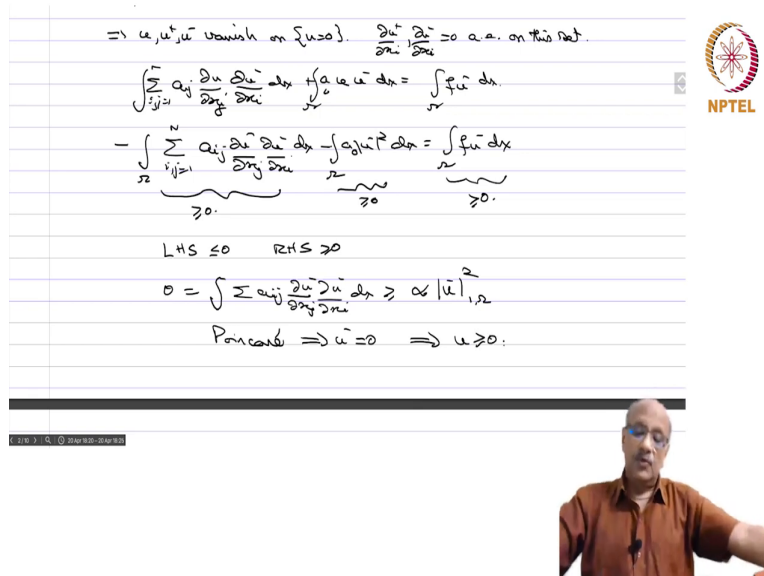 ⇒ u, u⁺, u⁻ vanish on {u=0}. ∂u⁺/∂xᵢ, ∂u⁻/∂xᵢ = 0 a.e. on this set.
∫_Ω Σ_{i,j=1}^N aᵢⱼ ∂u/∂xⱼ ∂u⁻/∂xᵢ dx + ∫_Ω a₀ u u⁻ dx = ∫_Ω f u⁻ dx.
- ∫_Ω Σ_{i,j=1}^N aᵢⱼ ∂u⁻/∂xⱼ ∂u⁻/∂xᵢ dx - ∫_Ω a₀|u⁻|² dx = ∫_Ω f u⁻ dx
≥0. ≥0 ≥0.
LHS ≤0 RHS ≥0
0 = ∫ Σ aᵢⱼ ∂u⁻/∂xⱼ ∂u⁻/∂xᵢ dx ≥ α |u⁻|²_{1,Ω}
Poincaré ⇒ u⁻=0 ⇒ u ≥ 0.
NPTEL
2/10
20 Apr 18:20 - 20 Apr 18:25